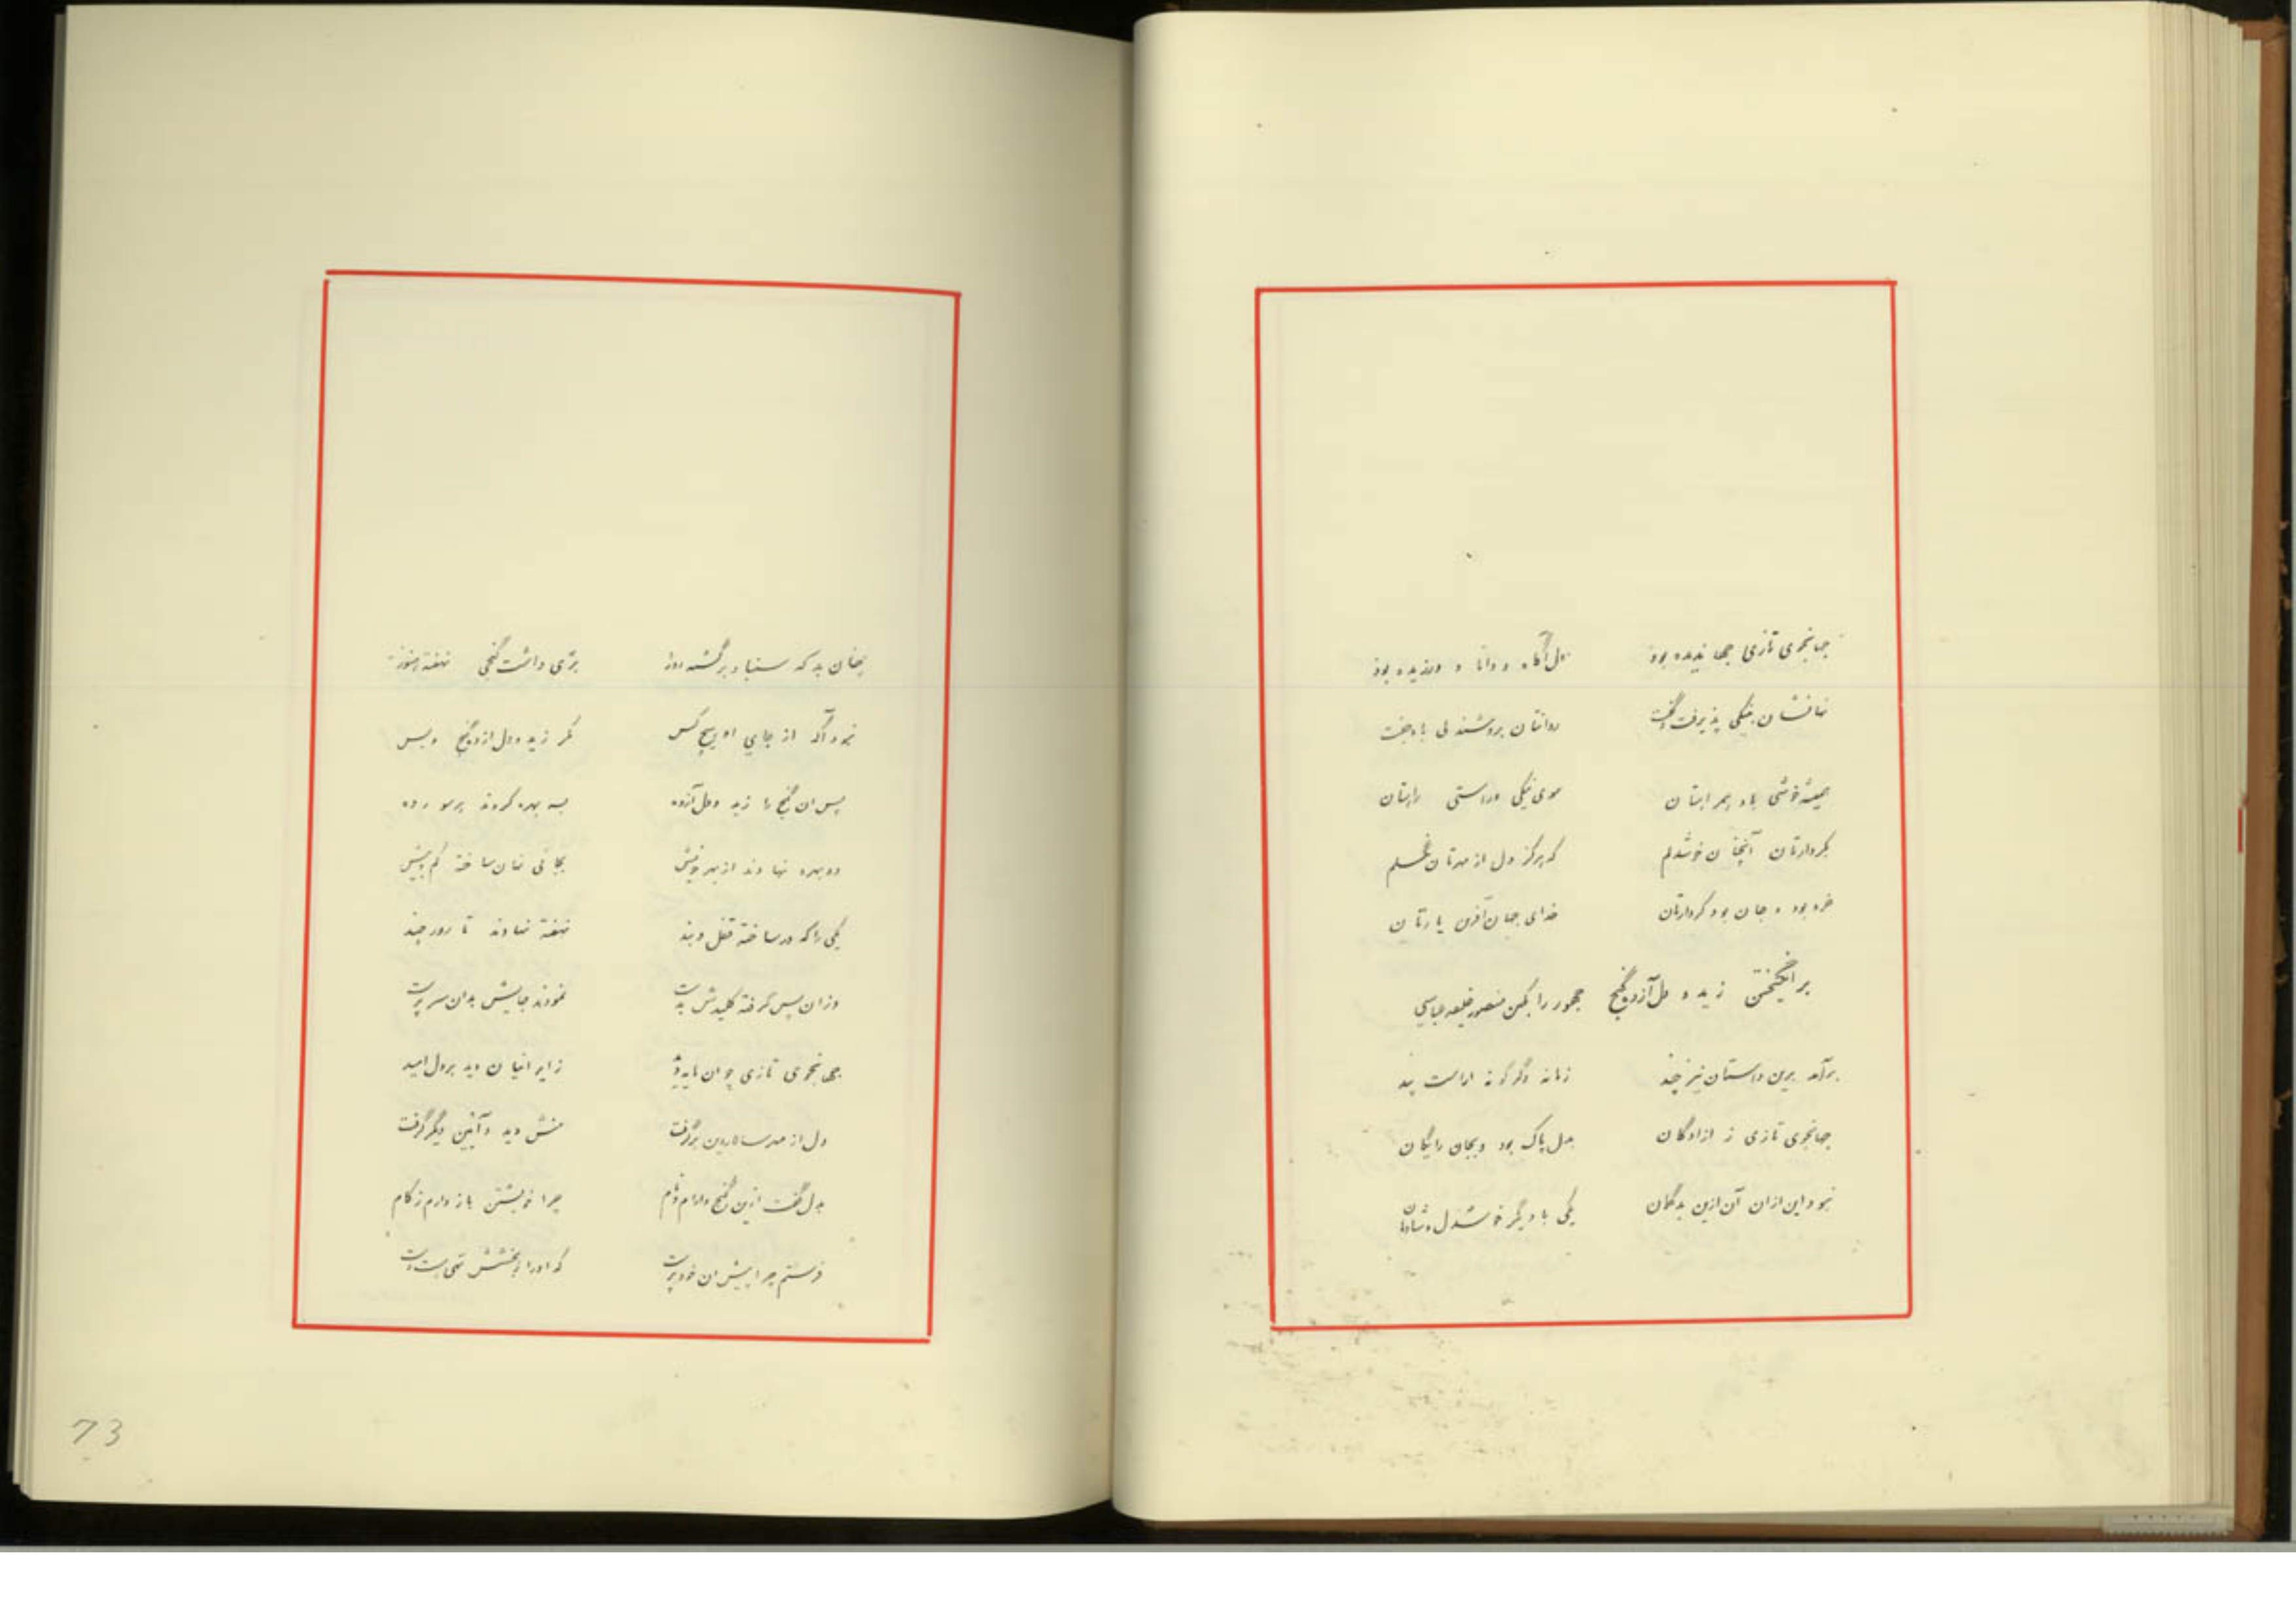 جهانجوی تازی جهاندیده بود دل آگاه و دانا و ورزیده بود
نیکی پذیرفت و گفت روانتان بروشندلی باد جفت
همیشه خوشی باد همراهتان سوی نیکی و راستی راهتان
بکردارتان آنچنان خوشدلم که هرگز دل از مهرتان نگسلم
خرد بود و جان بود کردارتان خدای جهان آفرین یارتان
برانگیختن زید و دل آزرد و گنج جمهور را بکین منصور خلیفه عباسی
برآمد برین داستان نیز چند زمانه دگرگونه آراست پند
جهانجوی تازی ز آزادگان بدل پاک بود و بجان رایگان
نبود این ازان آن ازین بدگمان یکی با دیگر خوشدل و شادمان
چنان بد که سنباد برگشته روز بری داشت گنجی نهفته هنوز
نبود آگه از جای او هیچ کس مگر زید و دل ازرد و گنج وبس
پس ان گنج را زید و دل آزرده بسه بهره کردند
دو بهره نهادند از بهر خویش بجائی نهان ساخته کم و بیش
یکی را که در ساخته قفل و بند نهفته نهادند تا روز چند
وزان پس گرفته کلیدش بدست نمودند جایش بدان سرپرست
جهانجوی تازی چو ان مایه دید ز ایرانیان دید بردل امید
دل از مهر سالار دین برگرفت منش دید و آئین دیگر گرفت
بدل گفت ازین گنج و آرام و نام چرا خویشتن باز دارم ز کام
فرستم چرا پیش ان خودپرست که اورا ز بخشش تهی هست دست
73